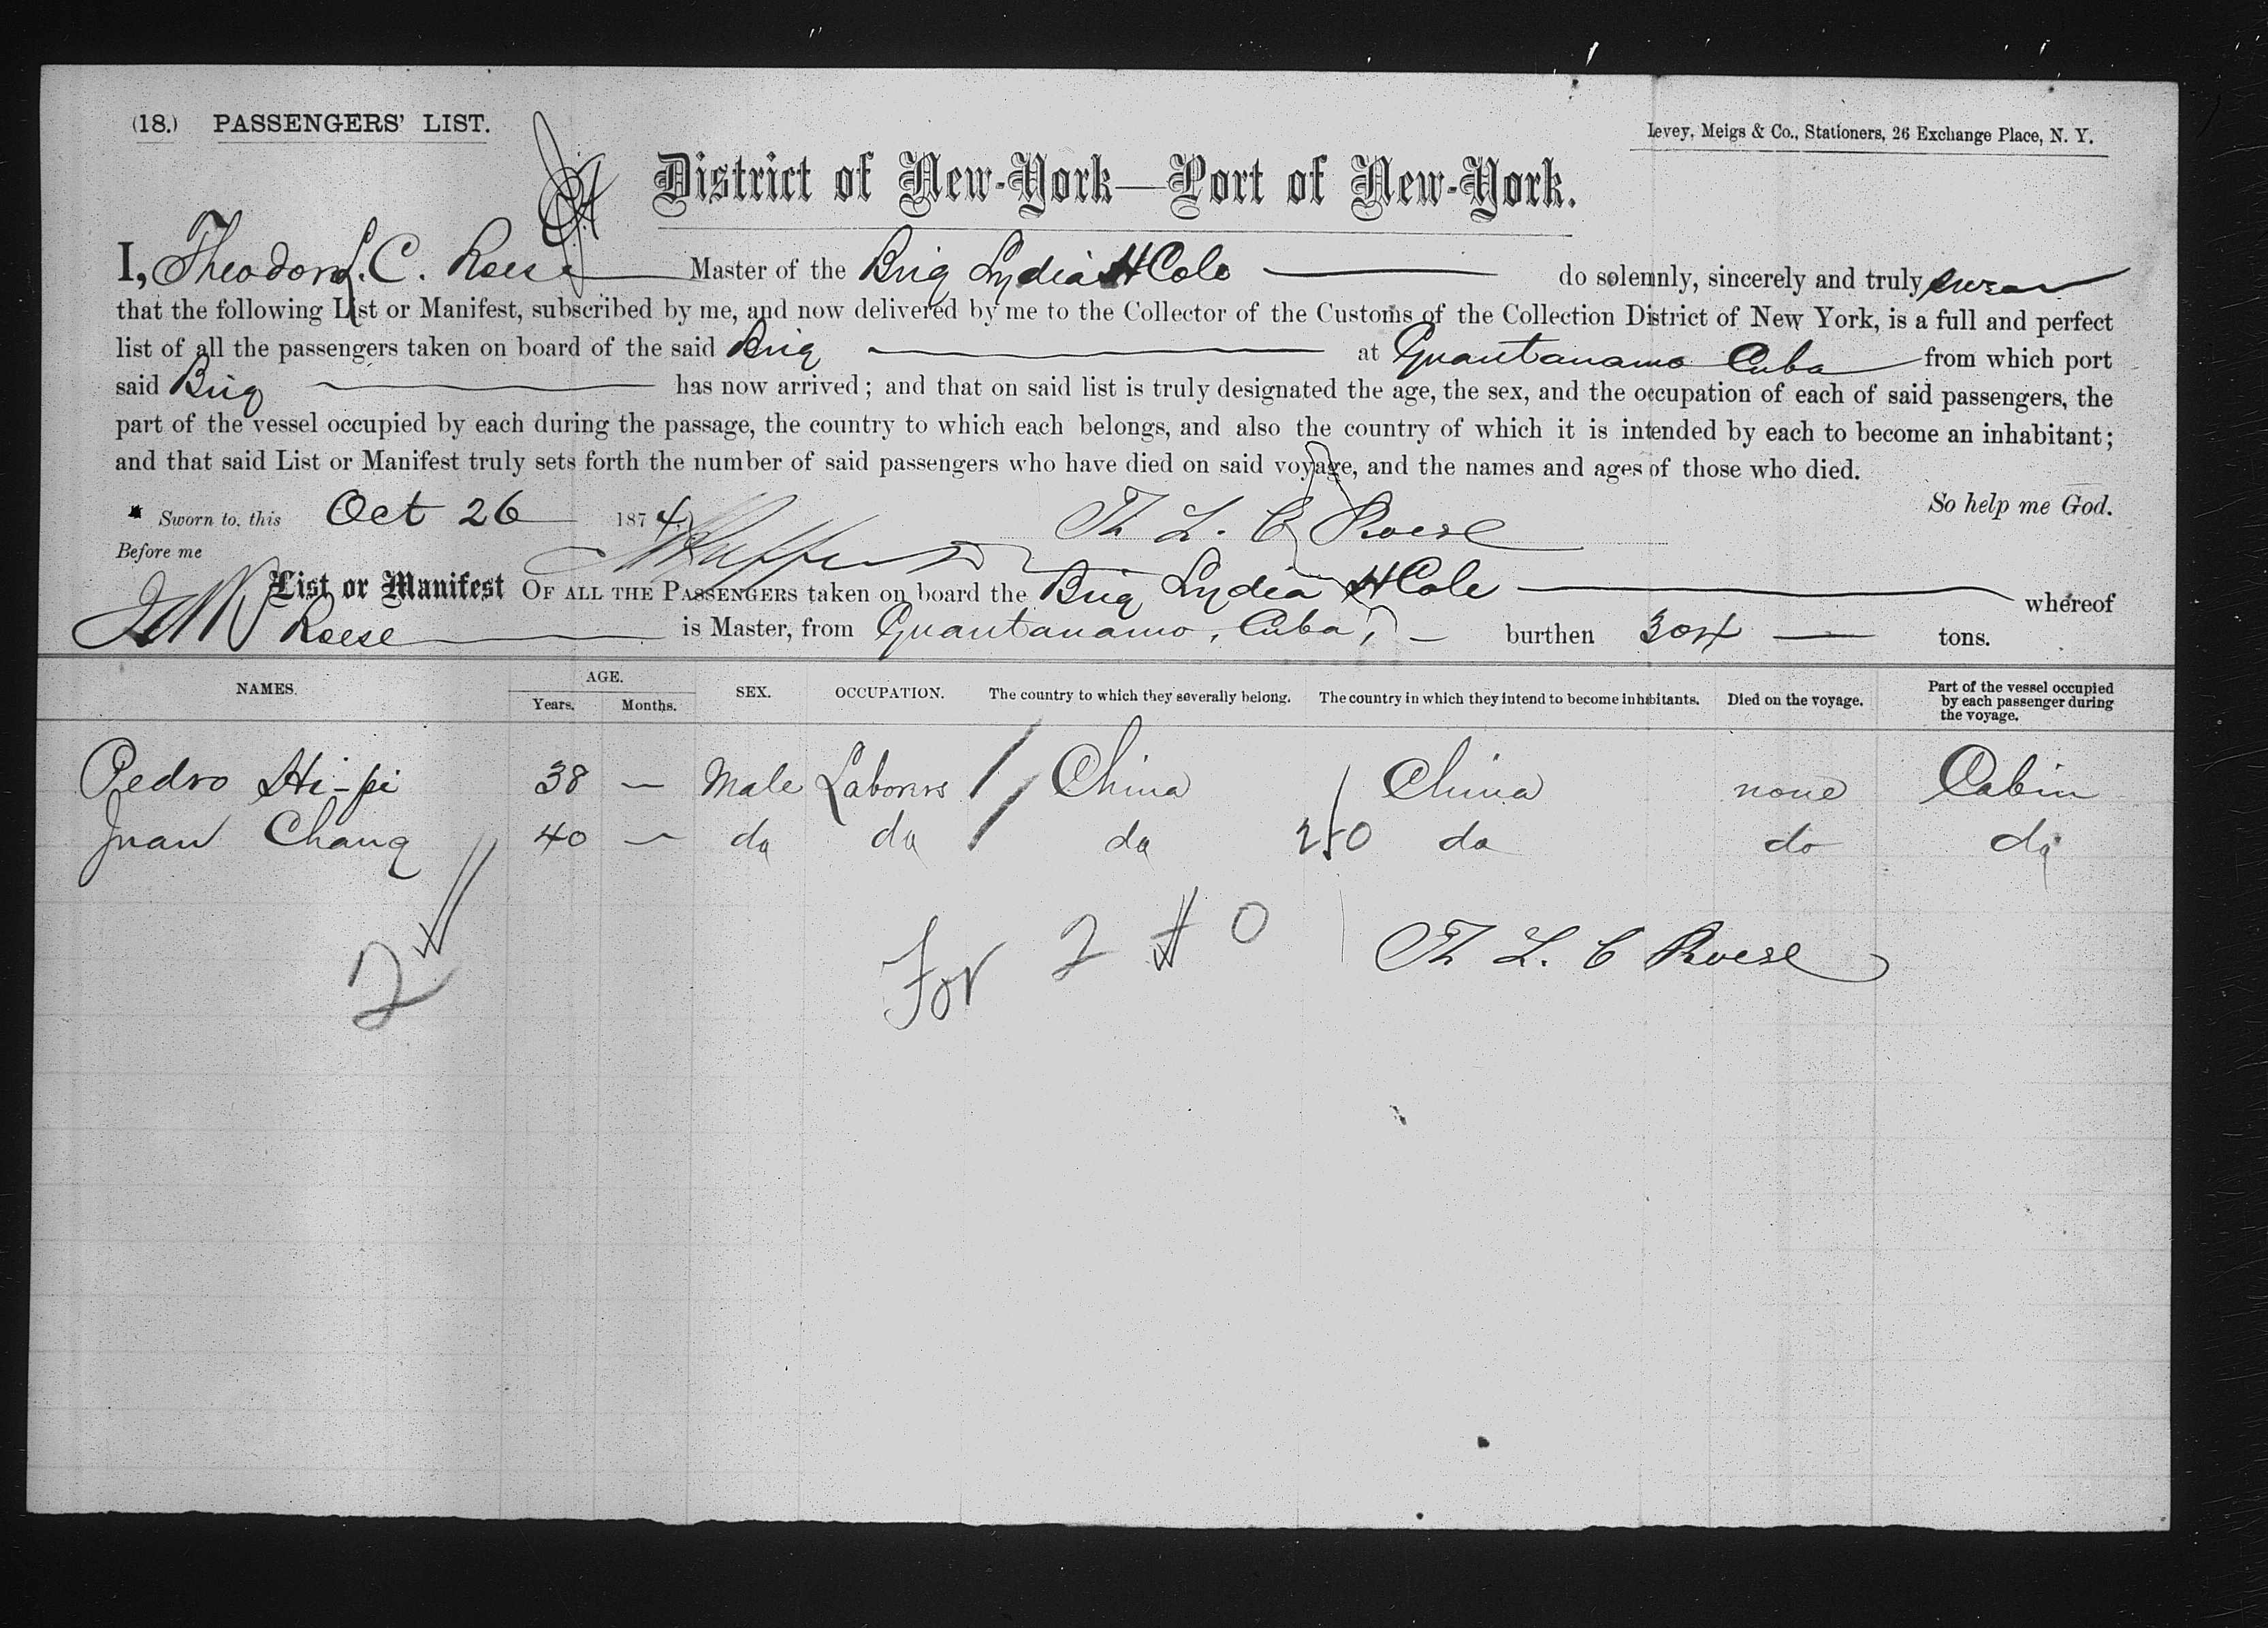 (18.) PASSENGERS' LIST.
Levey, Meigs & Co., Stationers, 26 Exchange Place, N. Y.
District of New-York—Port of New-York.
I, Theodore L. C. Roese Master of the Brig Lydia H Cole do solemnly, sincerely and truly swear
that the following List or Manifest, subscribed by me, and now delivered by me to the Collector of the Customs of the Collection District of New York, is a full and perfect
list of all the passengers taken on board of the said Brig at Guantanamo Cuba from which port
said Brig has now arrived; and that on said list is truly designated the age, the sex, and the occupation of each of said passengers, the
part of the vessel occupied by each during the passage, the country to which each belongs, and also the country of which it is intended by each to become an inhabitant;
and that said List or Manifest truly sets forth the number of said passengers who have died on said voyage, and the names and ages of those who died.
So help me God.
Sworn to, this Oct 26 1874 Th L. C Roese
Before me
List or Manifest OF ALL THE PASSENGERS taken on board the Brig Lydia H Cole whereof
Roese is Master, from Guantanamo, Cuba, burthen 304 tons.
NAMES. AGE. Years. Months. SEX. OCCUPATION. The country to which they severally belong. The country in which they intend to become inhabitants. Died on the voyage. Part of the vessel occupied by each passenger during the voyage.
Pedro Hi-pi 38 — Male Laborers China China none Cabin
Juan Chang 40 — do do do 250 do do do
2 For 2 0 Th L. C Roese